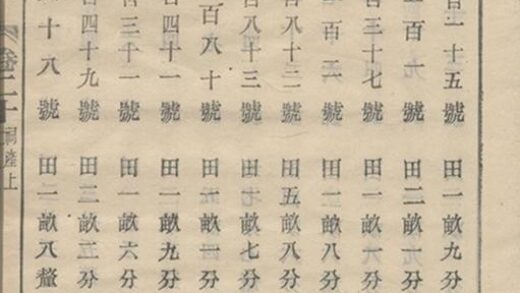 百一十五號 田一畝九分
一百九號 田二畝一分
百三十七號 田一畝一分
一百二號 田一畝八分
百八十二號 田五畝八分
百八十三號 田七畝七分
百八十號 田一畝一分
百四十一號 田一畝九分
百三十一號 田一畝六分
百四十九號 田二畝二分
十八號 田一畝八釐
卷二十 祠產上